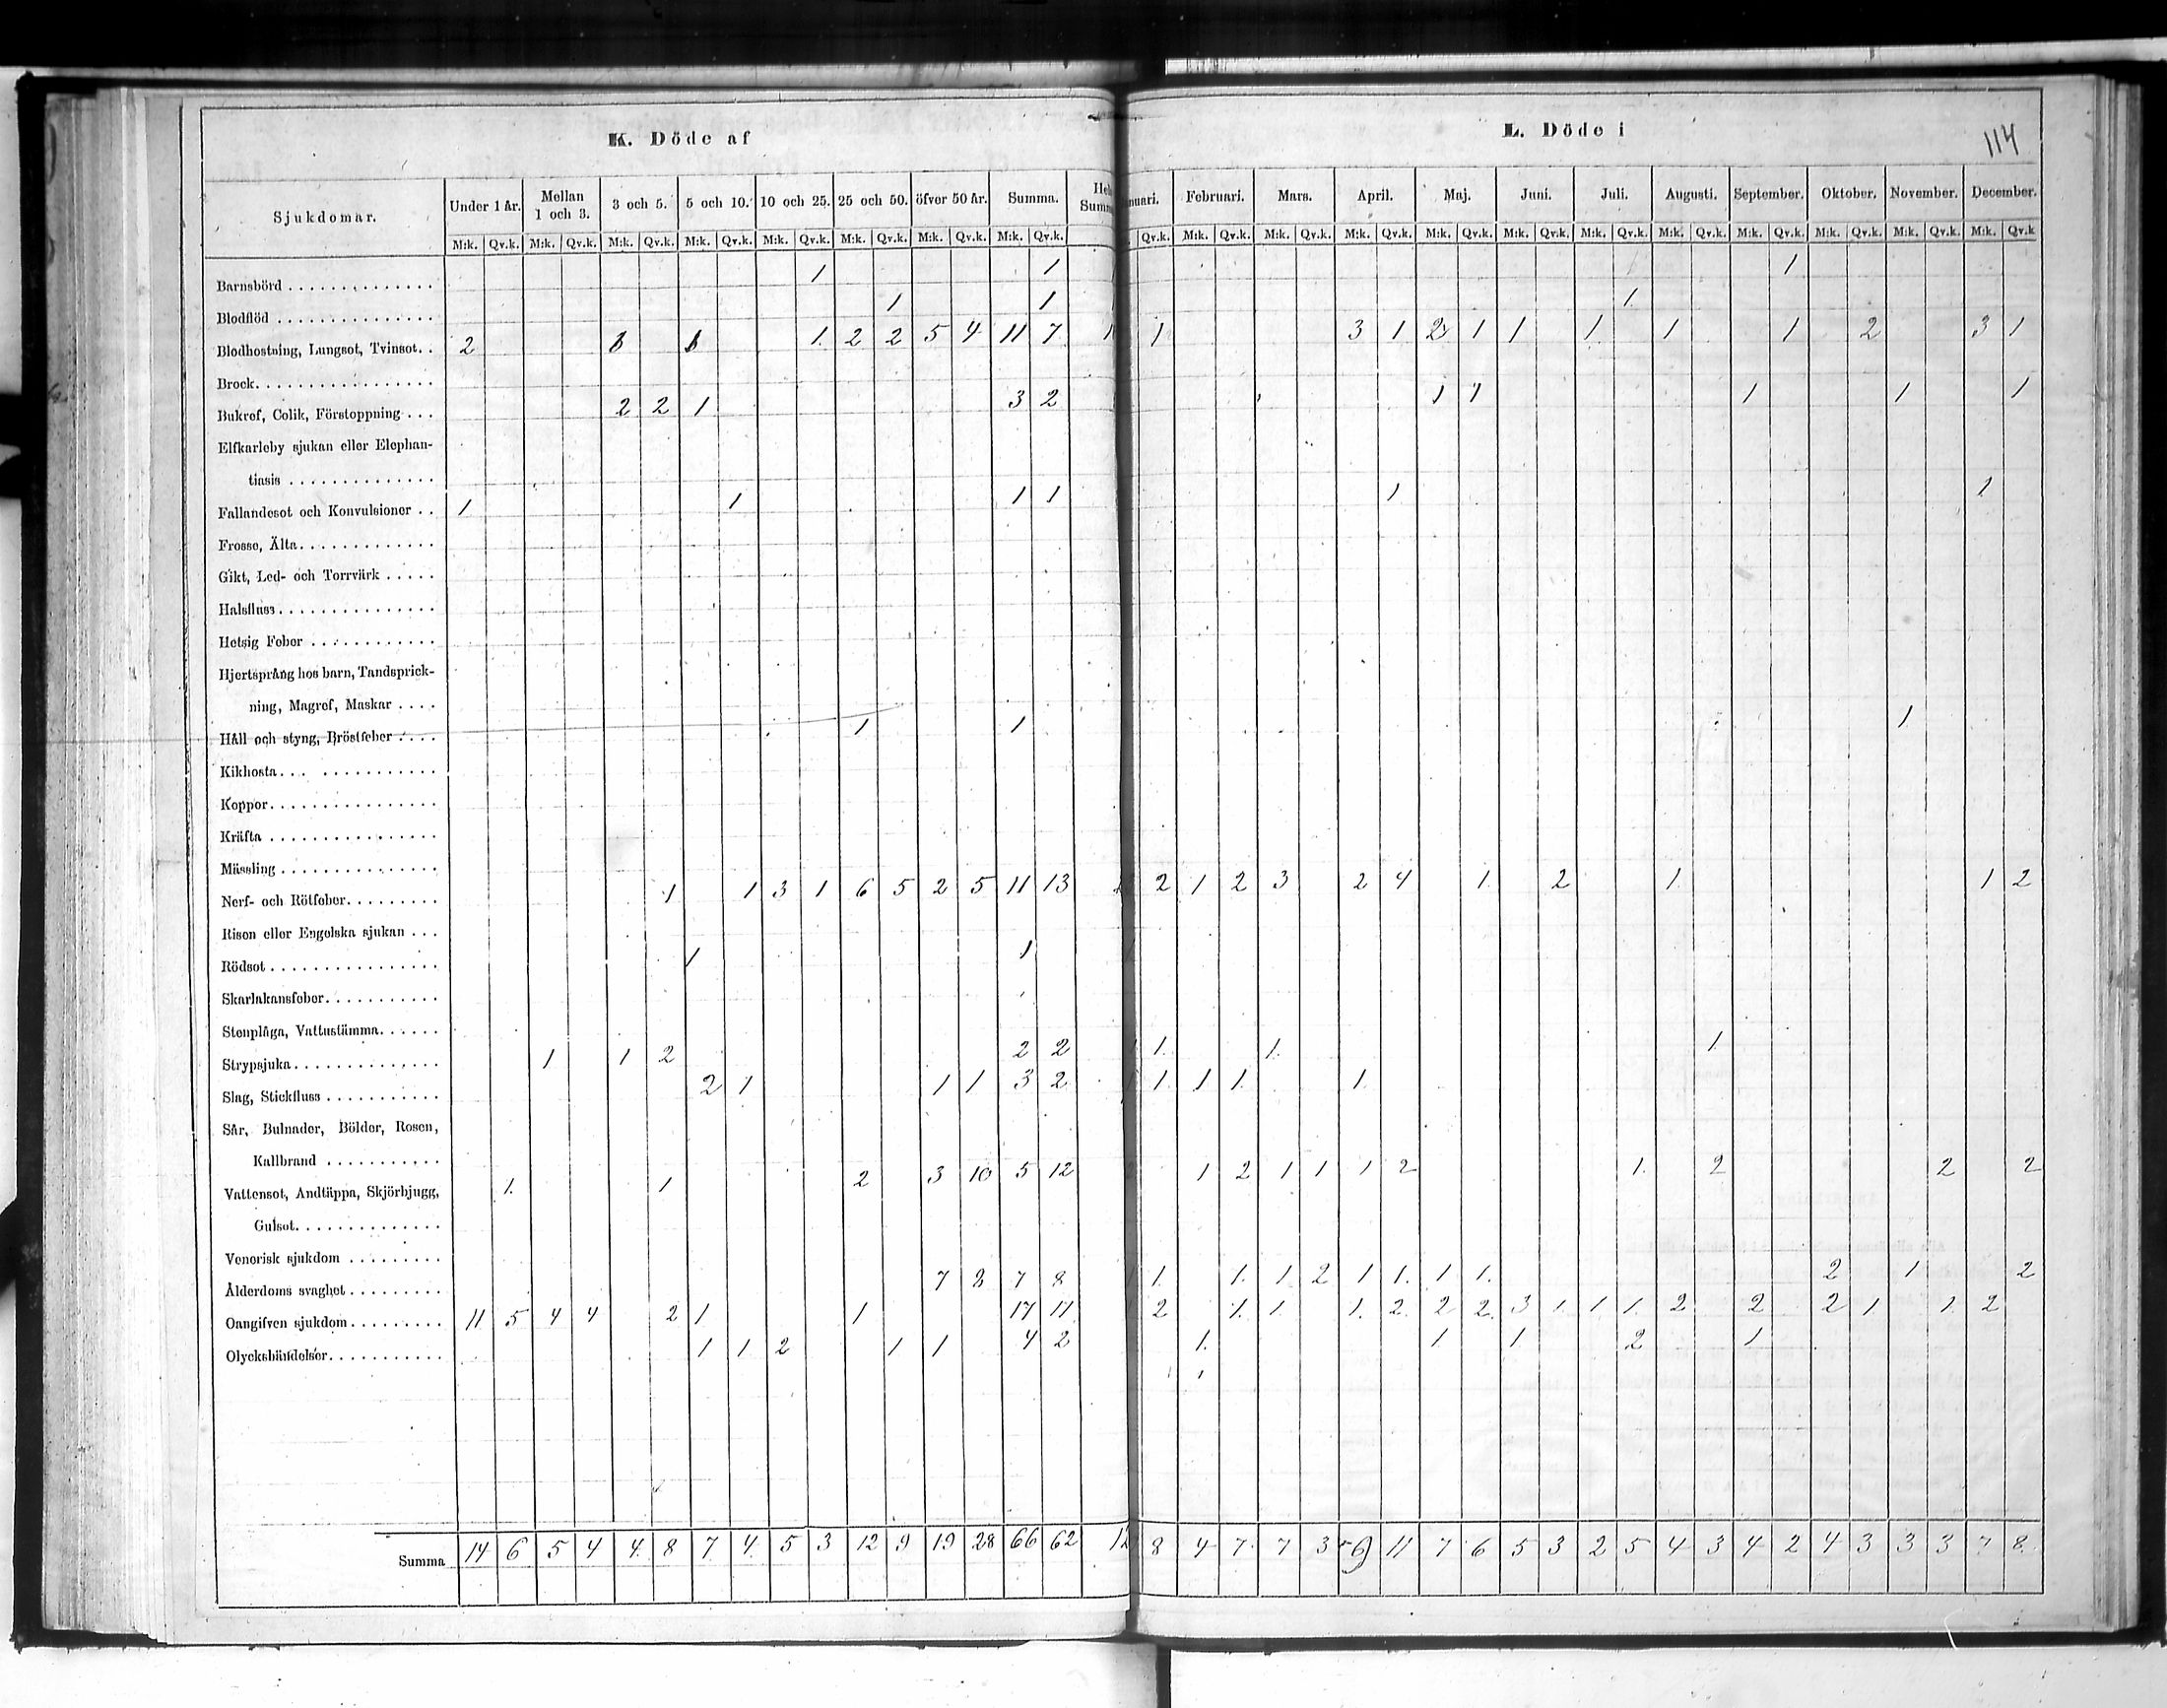 K. Döde af
L. Döde i
114
Sjukdomar. Under 1 år. Mellan 1 och 3. 3 och 5. 5 och 10. 10 och 25. 25 och 50. öfver 50 år. Summa. Februari. Mars. April. Maj. Juni. Juli. Augusti. September. Oktober. November. December.
M:k. Qv.k. M:k. Qv.k. M:k. Qv.k. M:k. Qv.k. M:k. Qv.k. M:k. Qv.k. M:k. Qv.k. M:k. Qv.k. Qv.k. M:k. Qv.k. M:k. Qv.k. M:k. Qv.k. M:k. Qv.k. M:k. Qv.k. M:k. Qv.k. M:k. Qv.k. M:k. Qv.k. M:k. Qv.k. M:k. Qv.k. M:k. Qv.k
Barnsbörd 1 1 1
Blodflöd 1 1 1
Blodhostning, Lungsot, Tvinsot. 2 1 1 1 2 2 5 4 11 7 1 3 1 2 1 1 1 1 1 2 3 1
Brock
Bukref, Colik, Förstoppning 2 2 1 3 2 1 1 1 1 1
Elfkarleby sjukan eller Elephan-
tiasis
Fallandesot och Konvulsioner 1 1 1 1 1 1
Frosse, Älta
Gikt, Led- och Torrvärk
Halsfluss
Hetsig Feber
Hjertsprång hos barn, Tandsprick-
ning, Magref, Maskar
Håll och styng, Bröstfeber 1 1 1
Kikhosta
Koppor
Kräfta
Mässling
Nerf- och Rötfeber 1 1 3 1 6 5 2 5 11 13 2 1 2 3 2 4 1 2 1 1 2
Risen eller Engelska sjukan
Rödsot 1 1
Skarlakansfeber
Stenplåga, Vattustämma
Strypsjuka 1 1 2 2 2 1 1 1
Slag, Stickfluss 2 1 1 1 3 2 1 1 1 1
Sår, Bulnader, Bölder, Rosen,
Kallbrand
Vattensot, Andtäppa, Skjörbjugg, 1 1 2 3 10 5 12 1 2 1 1 1 2 1 2 2 2
Gulsot
Venerisk sjukdom
Ålderdoms svaghet 7 8 7 8 1 1 1 2 1 1 1 1 2 1 2
Oangifven sjukdom 11 5 4 4 2 1 1 17 11 2 1 1 1 2 2 2 3 1 1 1 2 2 2 1 1 2
Olyckshändelser 1 1 2 1 1 4 2 1 1 1 2 1
Summa 14 6 5 4 4 8 7 4 5 3 12 9 19 28 66 62 12 8 4 7 7 3 9 11 7 6 5 3 2 5 4 3 4 2 4 3 3 3 7 8